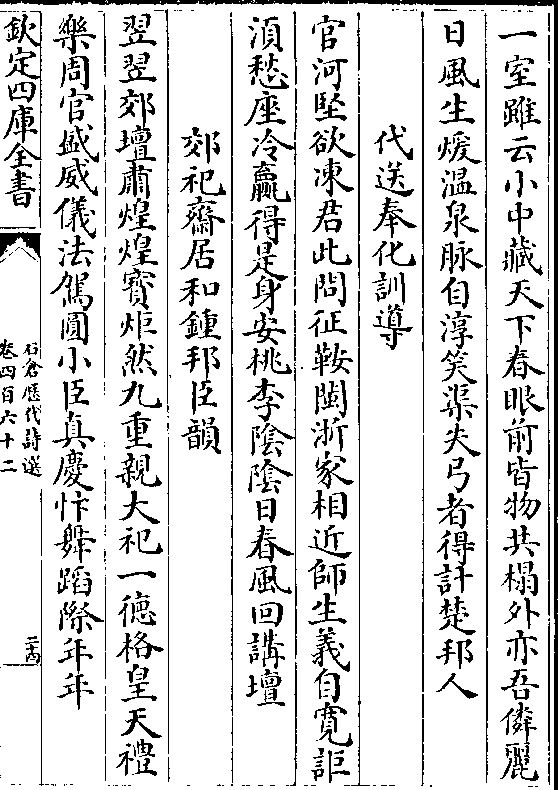 一室雖云小中藏天下春眼前皆物共榻外亦吾鄰麗
日風生煖溫泉脉自淳笑渠夫弓者得訐楚邦人
代送奉化訓導
官河堅欲凍君此問征鞍閩浙家相近師生義自寛詎
湏愁座冷贏得是身安桃李陰陰日春風回講壇
郊祀齋居和鍾邦臣韻
翌翌郊壇肅煌煌寳炬然九重親大祀一徳格皇天禮
樂周官盛威儀法駕圓小臣真慶忭舞蹈際年年
欽定四庫全書
石倉歴代詩選
卷四百六十二
二十四